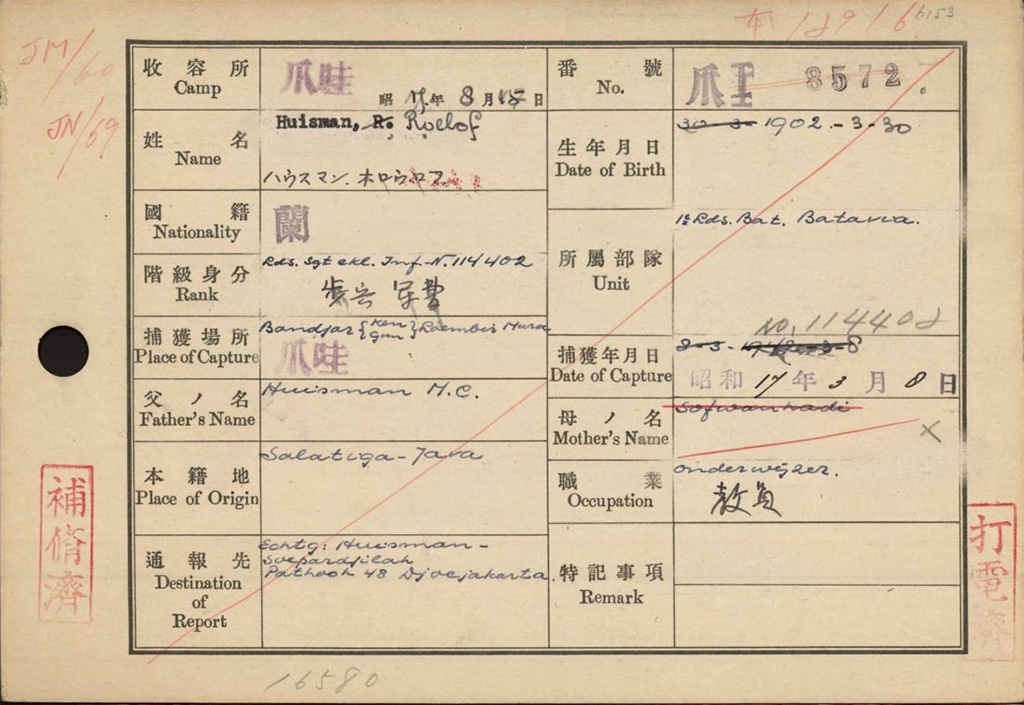 JM/60
JN/59
6153
収容所
Camp
爪哇
昭 17年 8月15日
番號
No.
爪 8572.
姓名
Name
Huisman, R. Roelof
ハウスマン. ホロウロフ
生年月日
Date of Birth
30-3-1902.-3-30
國籍
Nationality
蘭
階級身分
Rank
Rds. Sgt ekl. Inf. N. 114402
所屬部隊
Unit
1e Rds. Bat. Batavia.
No. 114402
捕獲場所
Place of Capture
Bandjar
爪哇
捕獲年月日
Date of Capture
昭和 17年 3月 8日
父ノ名
Father's Name
Huisman M.C.
母ノ名
Mother's Name
Sofwanhadi
×
本籍地
Place of Origin
Salatiga - Java
職業
Occupation
onderwijzer.
教員
通報先
Destination
of
Report
Echtg: Huisman-
Soepardjilah
Pathook 48 Djocjakarta.
特記事項
Remark
補脩濟
打電濟
16580